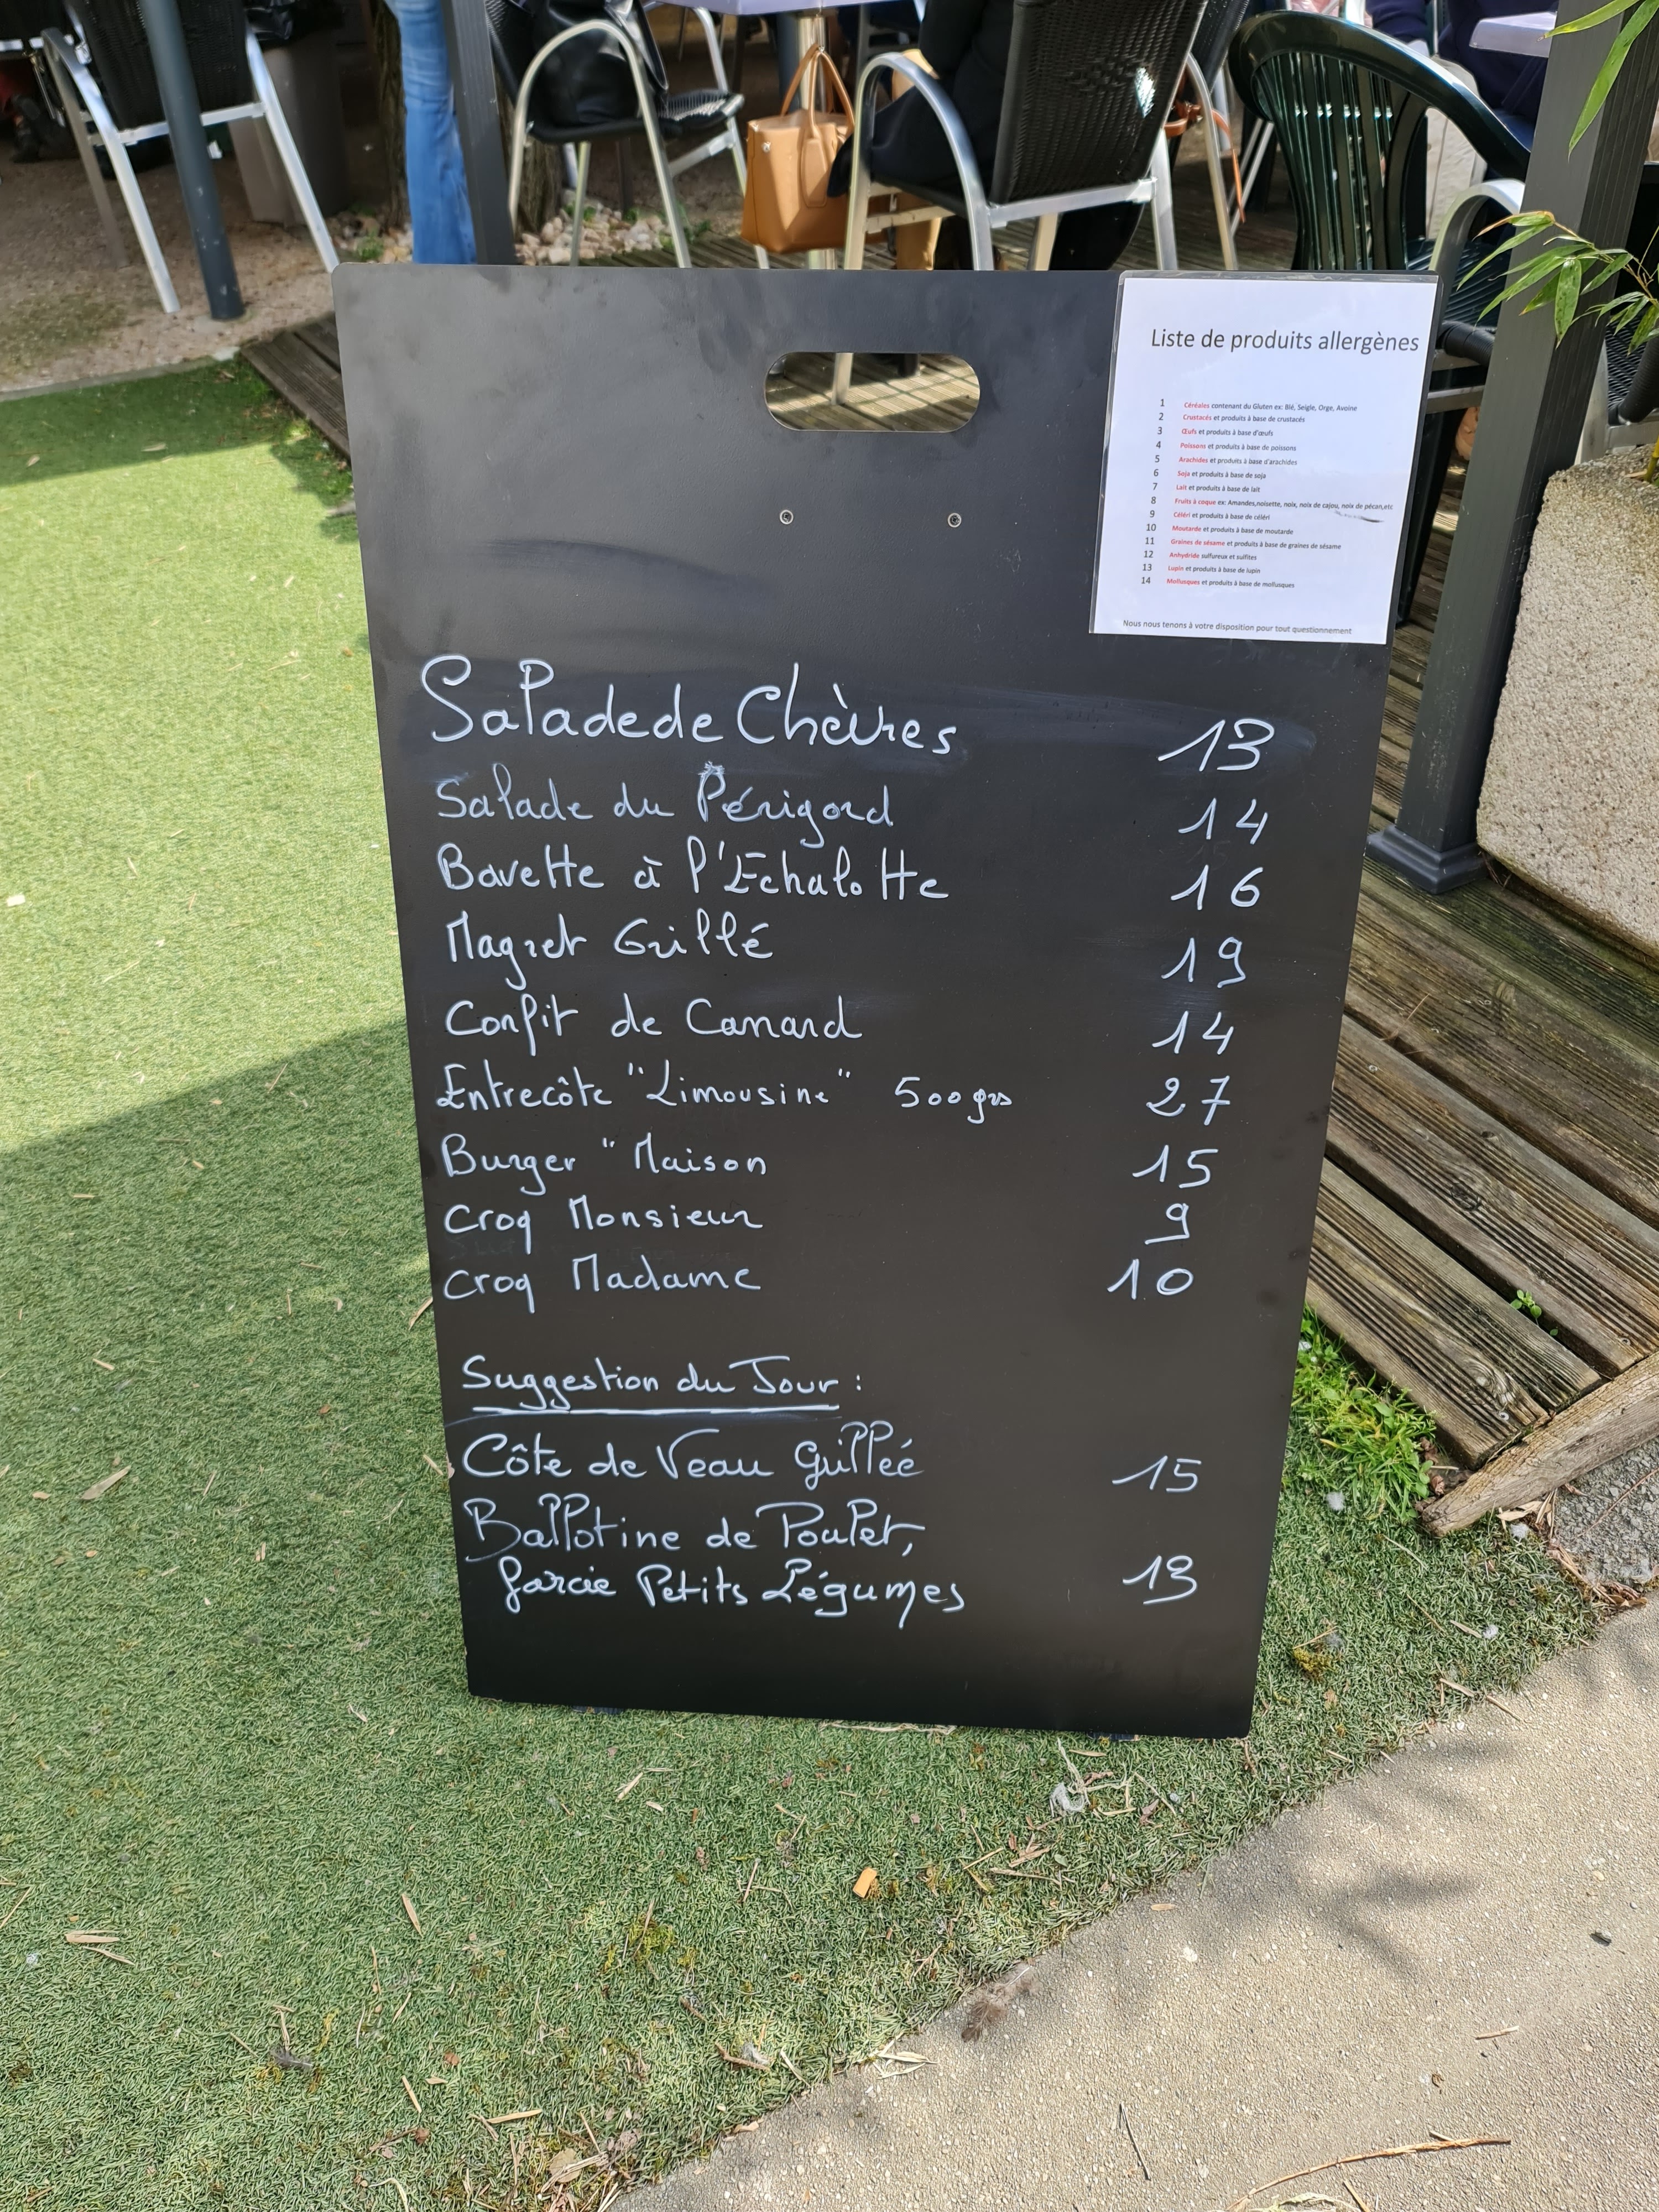 Liste de produits allergènes
1 Céréales contenant du Gluten ex: Blé, Seigle, Orge, Avoine
2 Crustacés et produits à base de crustacés
3 Œufs et produits à base d'œufs
4 Poissons et produits à base de poissons
5 Arachides et produits à base d'arachides
6 Soja et produits à base de soja
7 Lait et produits à base de lait
8 Fruits à coque ex: Amandes,noisette, noix, noix de cajou, noix de pécan,etc
9 Céléri et produits à base de céléri
10 Moutarde et produits à base de moutarde
11 Graines de sésame et produits à base de graines de sésame
12 Anhydride sulfureux et sulfites
13 Lupin et produits à base de lupin
14 Mollusques et produits à base de mollusques
Nous nous tenons à votre disposition pour tout questionnement
Salade de Chèvres 13
Salade du Périgord 14
Bavette à l'Echalotte 16
Magret Grillé 19
Confit de Canard 14
Entrecôte "Limousine" 500grs 27
Burger "Maison 15
Croq Monsieur 9
Croq Madame 10
Suggestion du Jour :
Côte de Veau Grillée 15
Ballotine de Poulet,
farcie Petits Légumes 13